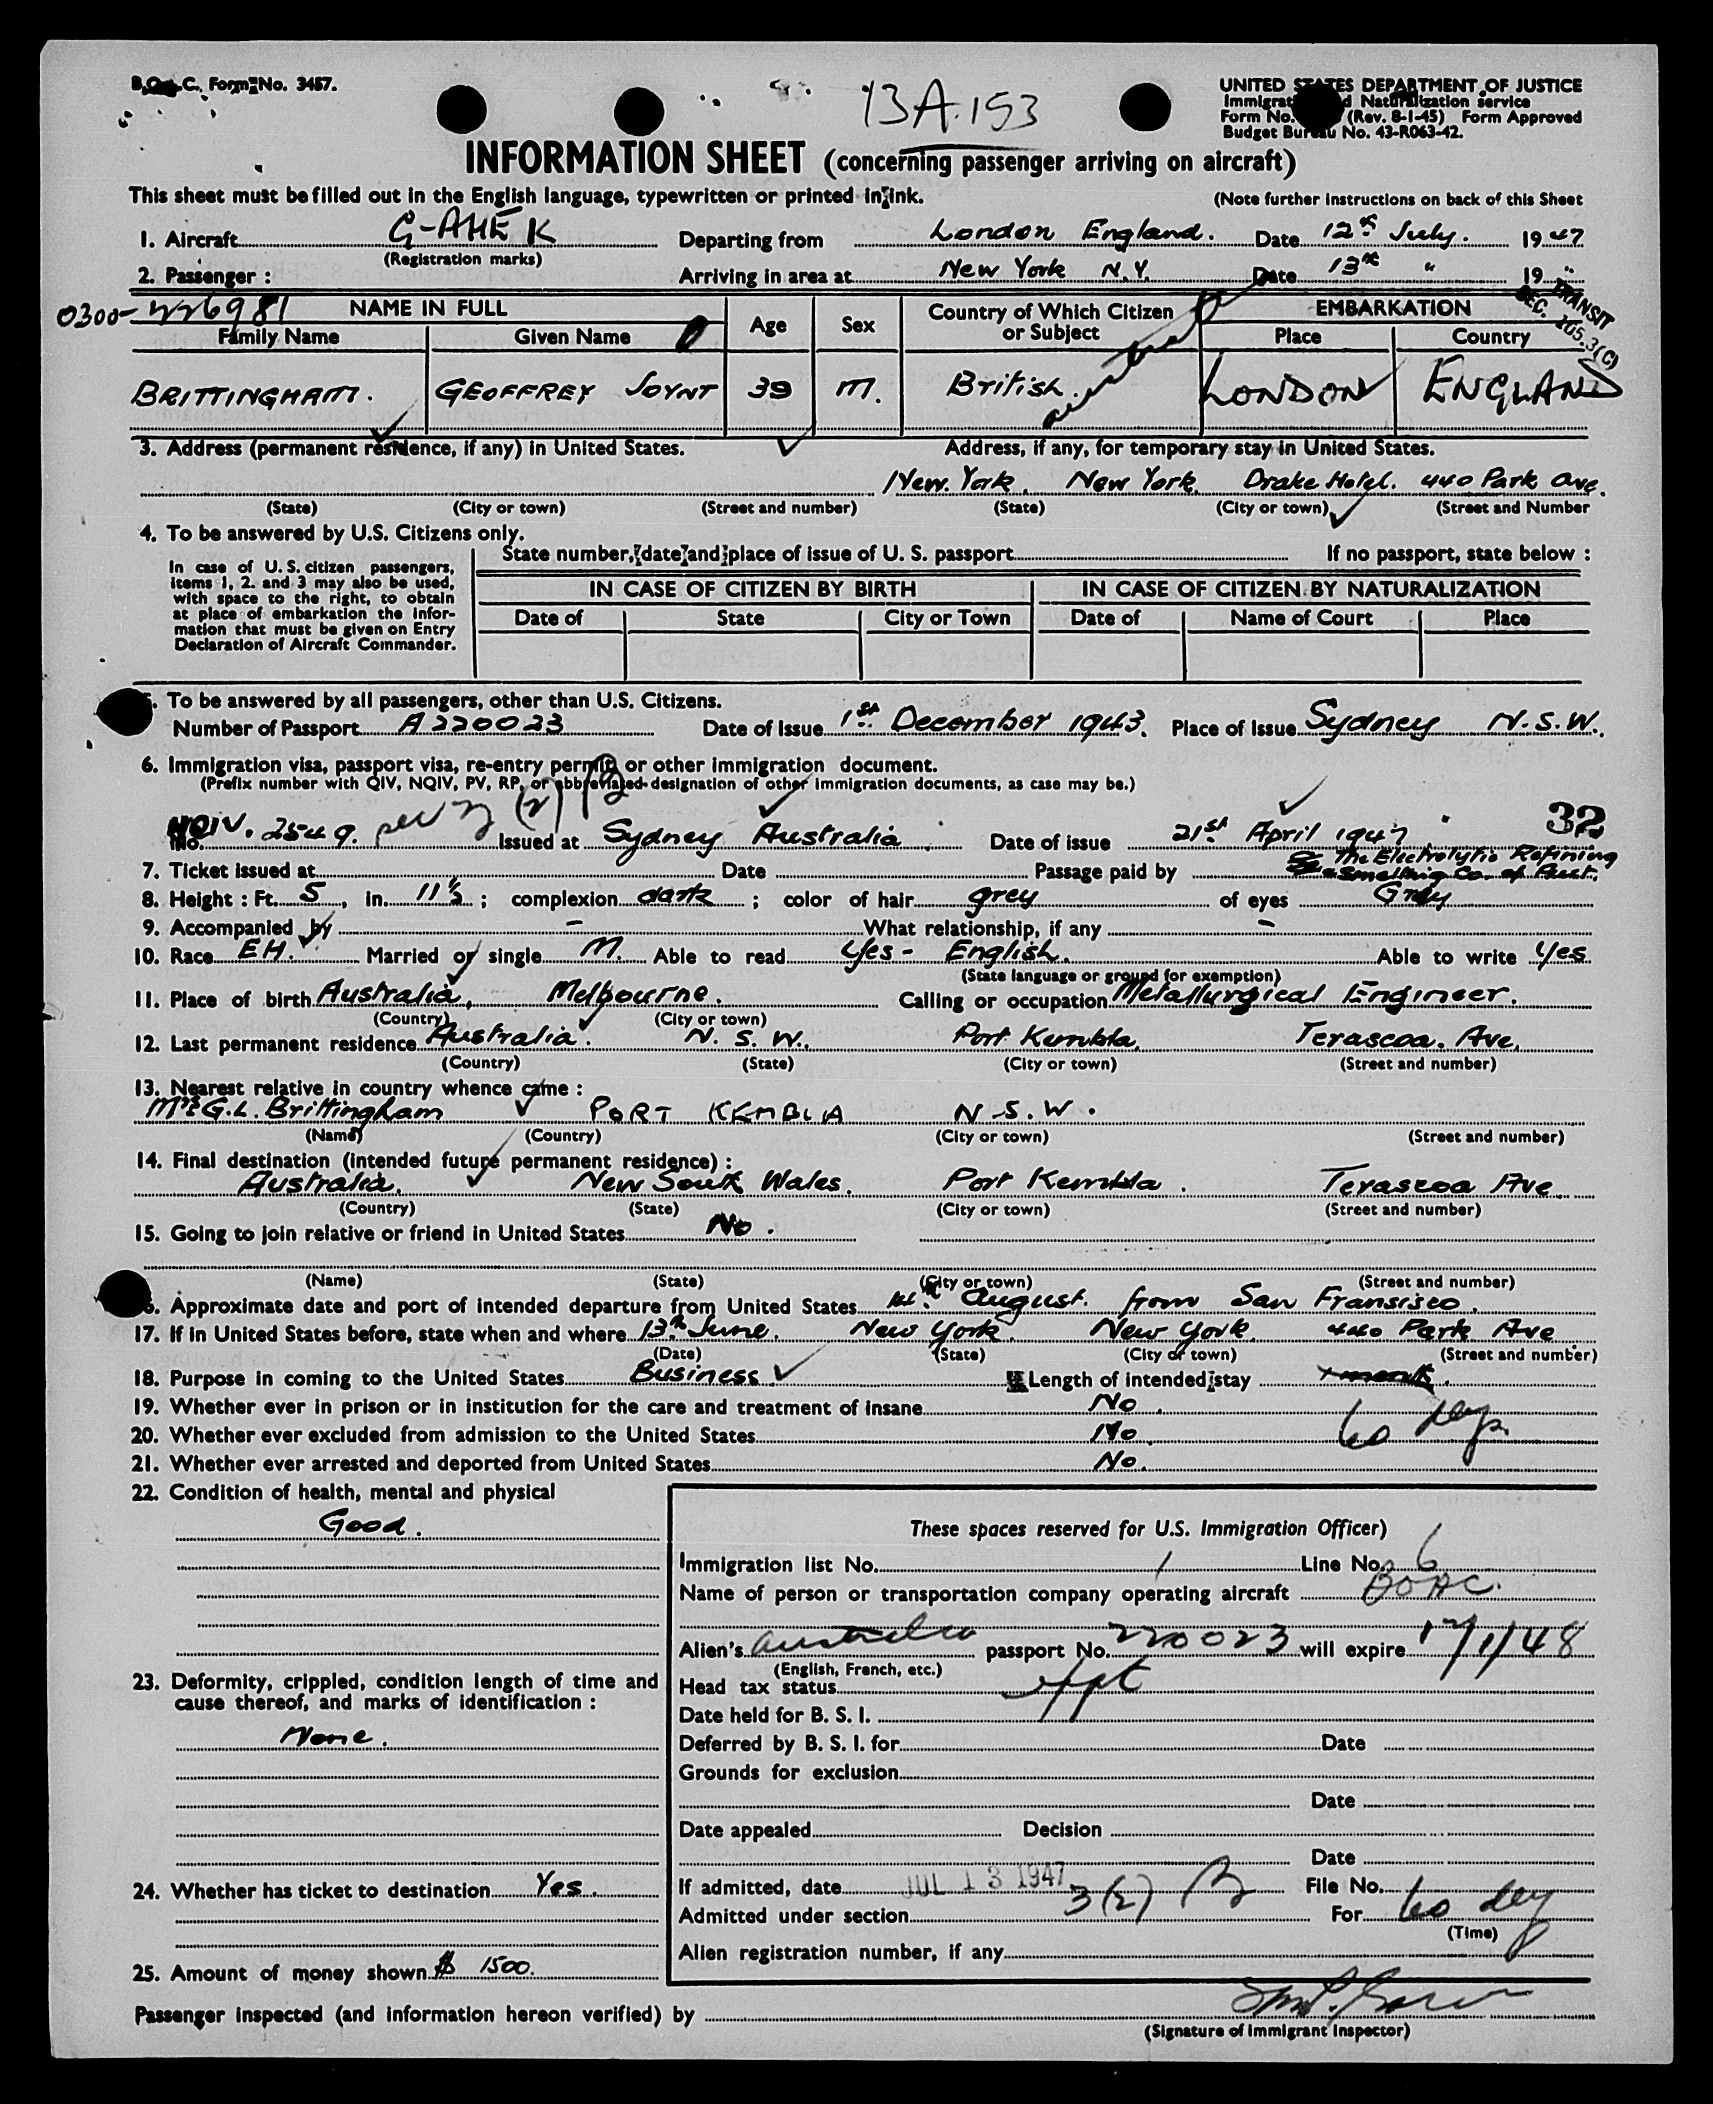 B.O.A.C. Form No. 3457.
13A.153
UNITED STATES DEPARTMENT OF JUSTICE
Immigration and Naturalization service
Form No. (Rev. 8-1-45) Form Approved
Budget Bureau No. 43-R063-42.
INFORMATION SHEET (concerning passenger arriving on aircraft)
This sheet must be filled out in the English language, typewritten or printed in ink.
(Note further instructions on back of this Sheet
1. Aircraft G-AHEK Departing from London England. Date 12th July. 1947
(Registration marks)
2. Passenger : Arriving in area at New York N.Y. Date 13th " 19 "
TRANSIT
SEC. 165.3(C)
0300-226981
NAME IN FULL Age Sex Country of Which Citizen or Subject EMBARKATION
Family Name Given Name Place Country
BRITTINGHAM. GEOFFREY JOYNT 39 M. British. Australia LONDON ENGLAND
3. Address (permanent residence, if any) in United States. Address, if any, for temporary stay in United States.
New York. New York. Drake Hotel. 440 Park Ave.
(State) (City or town) (Street and number) (State) (City or town) (Street and Number
4. To be answered by U.S. Citizens only.
In case of U.S. citizen passengers, items 1, 2. and 3 may also be used, with space to the right, to obtain at place of embarkation the information that must be given on Entry Declaration of Aircraft Commander.
State number, date and place of issue of U. S. passport If no passport, state below :
IN CASE OF CITIZEN BY BIRTH IN CASE OF CITIZEN BY NATURALIZATION
Date of State City or Town Date of Name of Court Place
5. To be answered by all passengers, other than U.S. Citizens.
Number of Passport A220023 Date of Issue 1st December 1943. Place of Issue Sydney N.S.W.
6. Immigration visa, passport visa, re-entry permit or other immigration document.
(Prefix number with QIV, NQIV, PV, RP, or abbreviated designation of other immigration documents, as case may be.)
32
No. NQIV. 2549. Issued at Sydney Australia Date of issue 21st April 1947
7. Ticket issued at Date Passage paid by The Electrolytic Refining
& Smelting Co. of Aust.
8. Height : Ft. 5, in. 11½ ; complexion dark ; color of hair grey of eyes Grey
9. Accompanied by - What relationship, if any -
10. Race EH. Married or single M. Able to read Yes - English. Able to write Yes
(State language or ground for exemption)
11. Place of birth Australia, Melbourne. Calling or occupation Metallurgical Engineer.
(Country) (City or town)
12. Last permanent residence Australia. N.S.W. Port Kembla. Terascoa. Ave.
(Country) (State) (City or town) (Street and number)
13. Nearest relative in country whence came :
Mrs G.L. Brittingham PORT KEMBLA N.S.W.
(Name) (Country) (City or town) (Street and number)
14. Final destination (intended future permanent residence) :
Australia. New South Wales. Port Kembla. Terascoa Ave
(Country) (State) (City or town) (Street and number)
15. Going to join relative or friend in United States No.
(Name) (State) (City or town) (Street and number)
16. Approximate date and port of intended departure from United States August. from San Fransisco.
17. If in United States before, state when and where 13th June. New York. New York. 440 Park Ave
(Date) (State) (City or town) (Street and number)
18. Purpose in coming to the United States Business. Length of intended stay
60 days
19. Whether ever in prison or in institution for the care and treatment of insane No.
20. Whether ever excluded from admission to the United States No.
21. Whether ever arrested and deported from United States No.
22. Condition of health, mental and physical
Good.
23. Deformity, crippled, condition length of time and
cause thereof, and marks of identification :
None.
24. Whether has ticket to destination Yes.
25. Amount of money shown $ 1500.
These spaces reserved for U.S. Immigration Officer)
Immigration list No. 1 Line No. 6
Name of person or transportation company operating aircraft BOAC.
Alien's Australia passport No. 220023 will expire 17/1/48
(English, French, etc.)
Head tax status
Date held for B. S. I.
Deferred by B. S. I. for Date
Grounds for exclusion
Date
Date appealed Decision
Date
If admitted, date JUL 13 1947 File No.
Admitted under section 3(2) For 60 day
(Time)
Alien registration number, if any
Passenger inspected (and information hereon verified) by
(Signature of Immigrant Inspector)